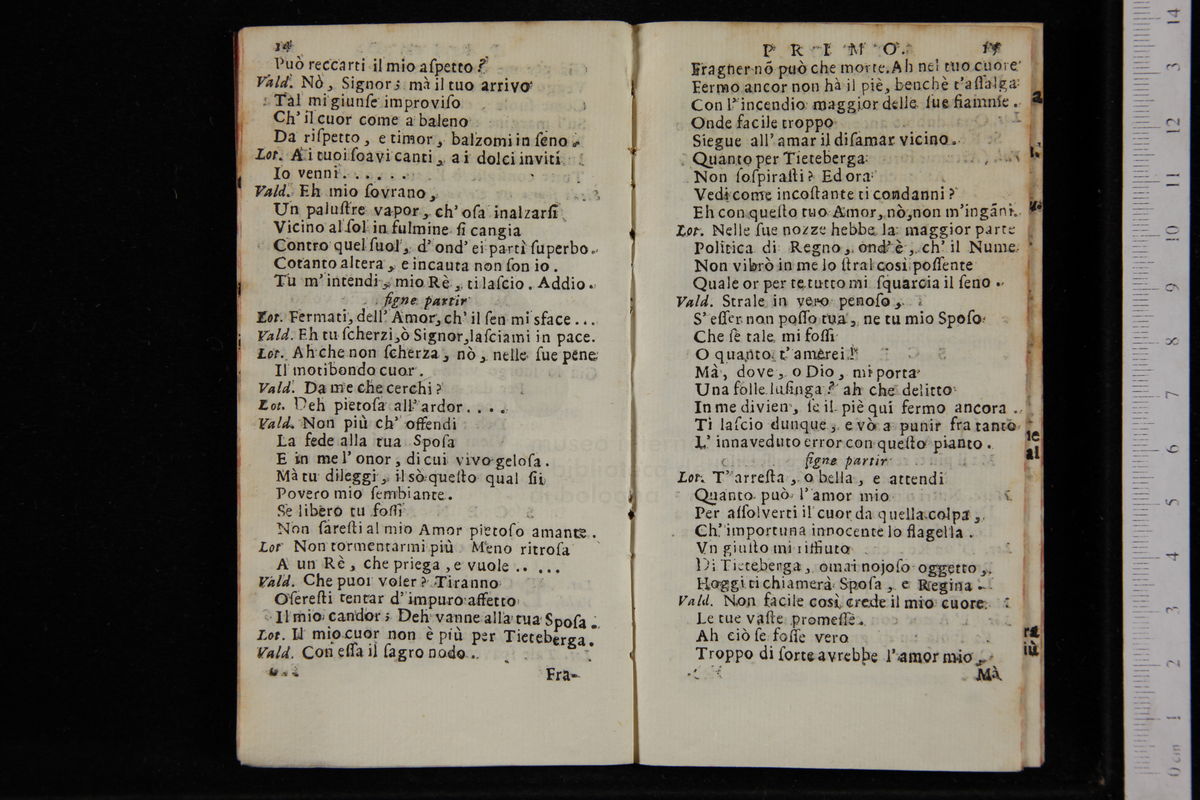 14
Può reccarti il mio aſpetto?
Vald. Nò, Signor; mà il tuo arrivo
Tal mi giunſe improviſo
Ch' il cuor come a baleno
Da riſpetto, e timor, balzomi in ſeno.
Lot. A i tuoi ſoavi canti, a i dolci inviti
Io venni......
Vald. Eh mio ſovrano,
Un paluſtre vapor, ch' oſa inalzarſi
Vicino al ſol in fulmine ſi cangia
Contro quel ſuol, d' ond' ei partì ſuperbo.
Cotanto altera, e incauta non ſon io.
Tu m' intendi, mio Rè, ti laſcio. Addio.
ſigne partir
Lot. Fermati, dell' Amor, ch' il ſen mi sface...
Vald. Eh tu ſcherzi, ò Signor, laſciami in pace.
Lot. Ah che non ſcherza, nò, nelle ſue pene
Il motibondo cuor.
Vald. Da me che cerchi?
Lot. Deh pietoſa all' ardor....
Vald. Non più ch' offendi
La fede alla tua Spoſa
E in me l' onor, di cui vivo geloſa.
Mà tu dileggi, il sò queſto qual ſii
Povero mio ſembiante.
Se libero tu foſſi
Non fareſti al mio Amor pietoſo amante.
Lot Non tormentarmi più Meno ritroſa
A un Rè, che priega, e vuole.. ...
Vald. Che puoi voler? Tiranno
Oſereſti tentar d' impuro affetto
Il mio candor; Deh vanne alla tua Spoſa.
Lot. Il mio cuor non è più per Tieteberga.
Vald. Con eſſa il ſagro nodo.
Fra-
PRIMO. 15
Fragner nõ può che morte. Ah nel tuo cuore
Fermo ancor non hà il piè, benchè t'aſſalga
Con l' incendio maggior delle ſue fiamme.
Onde facile troppo
Siegue all' amar il diſamar vicino.
Quanto per Tieteberga
Non ſoſpiraſti? Ed ora
Vedi come incoſtante ti condanni?
Eh con queſto tuo Amor, nò, non m'ingãni.
Lot. Nelle ſue nozze hebbe la maggior parte
Politica di Regno, ond' è, ch' il Nume
Non vibrò in me lo ſtral così poſſente
Quale or per te tutto mi ſquarcia il ſeno.
Vald. Strale in vero penoſo,
S' eſſer non poſſo tua, ne tu mio Spoſo
Che ſe tale mi foſſi
O quanto t' amerei!
Mà, dove, o Dio, mi porta
Una folle luſinga? ah che delitto
In me divien, ſe il piè quì fermo ancora.
Ti laſcio dunque, e vò a punir fra tanto
L' innaveduto error con queſto pianto.
ſigne partir
Lot. T' arreſta, o bella, e attendi
Quanto può l' amor mio
Per aſſolverti il cuor da quella colpa,
Ch' importuna innocente lo flagella.
Vn giuſto mi riffiuto
Di Tieteberga, omai nojoſo oggetto,
Hoggi ti chiamerà Spoſa, e Regina.
Vald. Non facile così crede il mio cuore
Le tue vaſte promeſſe.
Ah ciò ſe foſſe vero
Troppo di ſorte avrebbe l'amor mio,
Mà